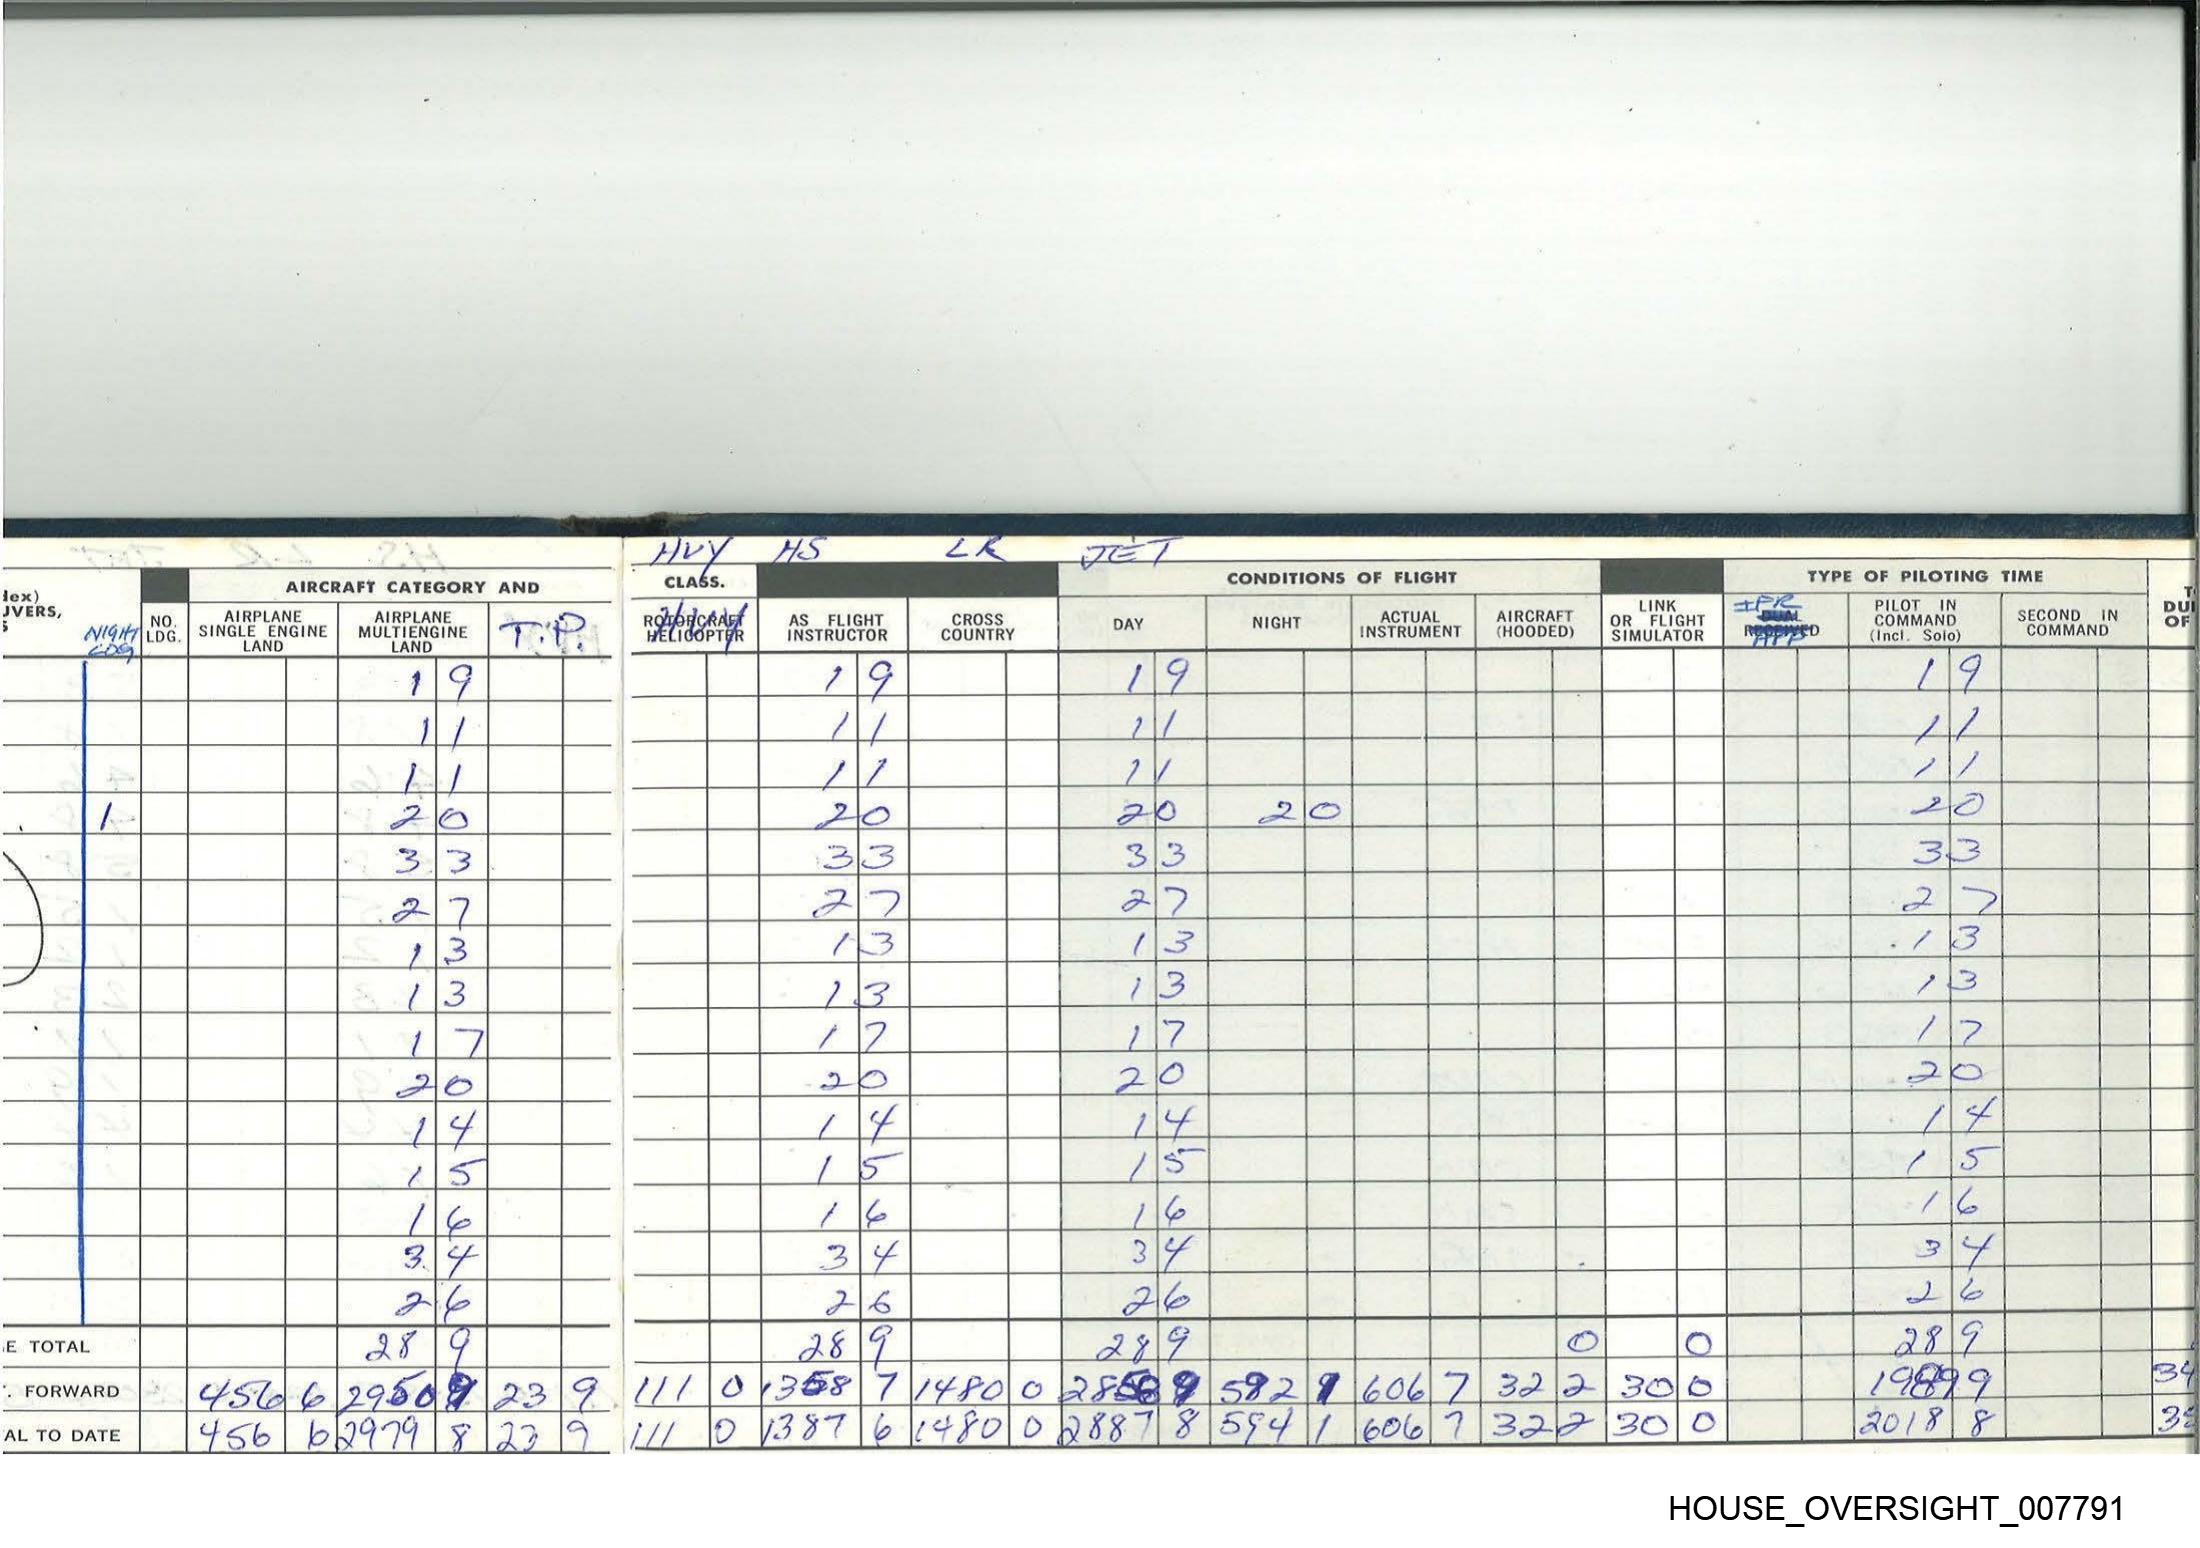 HVY HS LR JET
AIRCRAFT CATEGORY AND CLASS. CONDITIONS OF FLIGHT TYPE OF PILOTING TIME
NIGHT LDG NO. LDG. AIRPLANE SINGLE ENGINE LAND AIRPLANE MULTIENGINE LAND T.P. ROTORCRAFT HELICOPTER AS FLIGHT INSTRUCTOR CROSS COUNTRY DAY NIGHT ACTUAL INSTRUMENT AIRCRAFT (HOODED) LINK OR FLIGHT SIMULATOR IFR DUAL RECEIVED APP PILOT IN COMMAND (Incl. Solo) SECOND IN COMMAND
1 9 1 9 1 9 1 9
1 1 1 1 1 1 1 1
1 1 1 1 1 1 1 1
1 2 0 2 0 2 0 2 0 2 0
3 3 3 3 3 3 3 3
2 7 2 7 2 7 2 7
1 3 1 3 1 3 1 3
1 3 1 3 1 3 1 3
1 7 1 7 1 7 1 7
2 0 2 0 2 0 2 0
1 4 1 4 1 4 1 4
1 5 1 5 1 5 1 5
1 6 1 6 1 6 1 6
3 4 3 4 3 4 3 4
2 6 2 6 2 6 2 6
E TOTAL 28 9 28 9 28 9 0 0 28 9
. FORWARD 456 6 2950 9 23 9 111 0 1358 7 1480 0 606 7 32 2 30 0 1989 9
AL TO DATE 456 6 2979 8 23 9 111 0 1387 6 1480 0 2887 8 594 1 606 7 32 2 30 0 2018 8
HOUSE_OVERSIGHT_007791